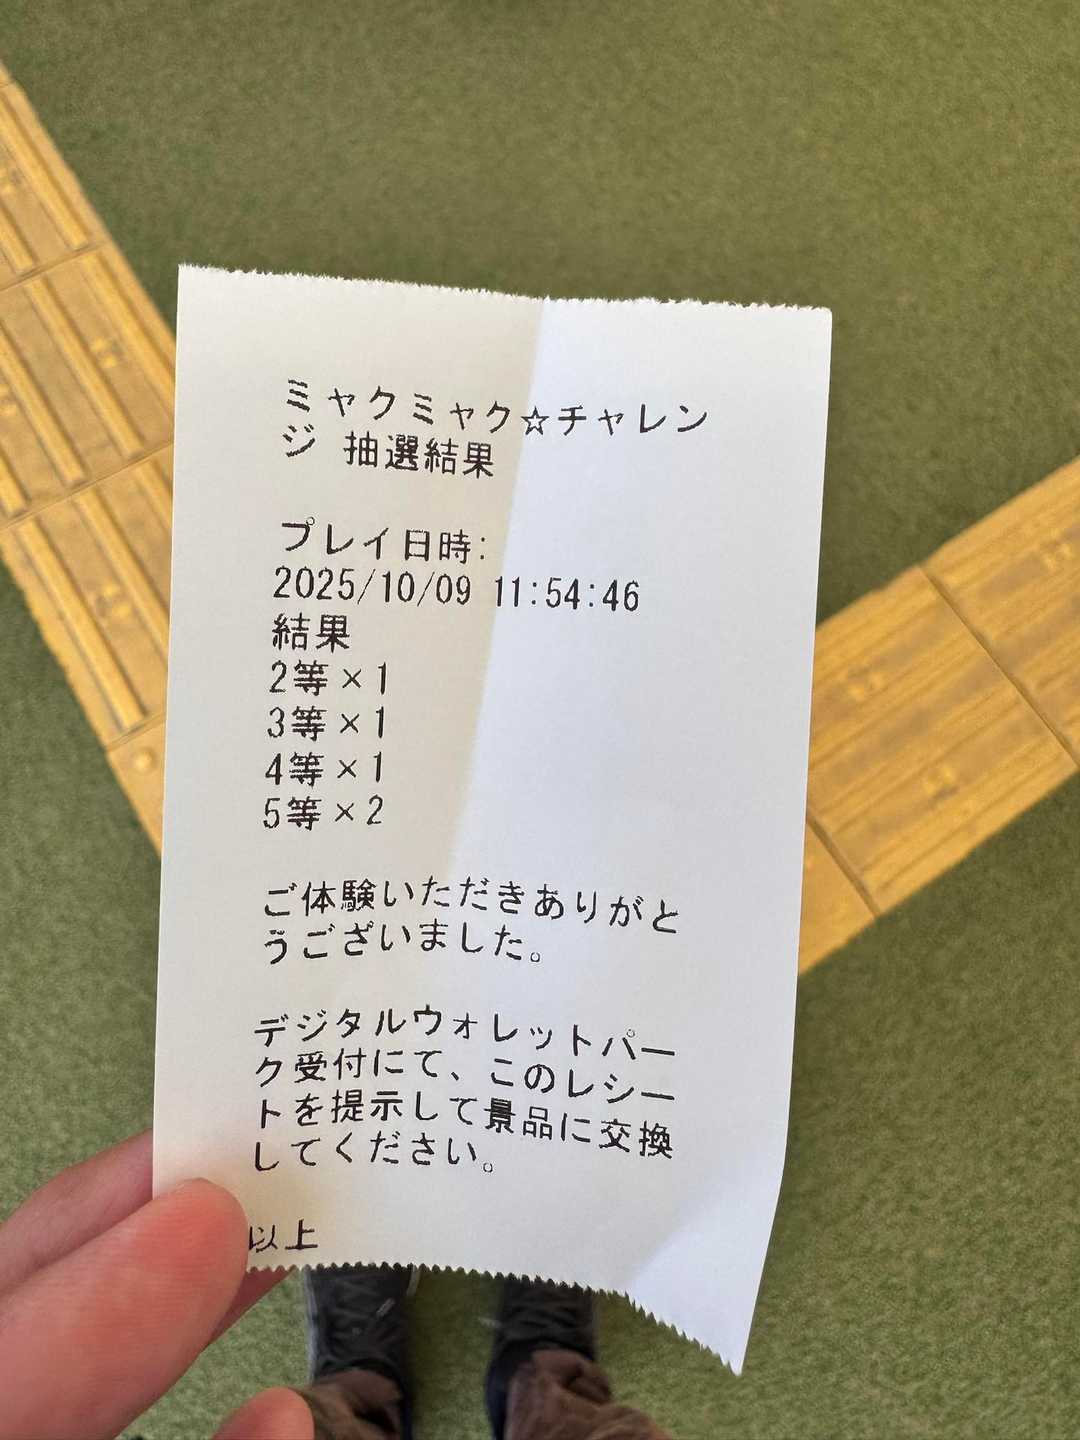 ミャクミャク☆チャレン
ジ 抽選結果
プレイ日時:
2025/10/09 11:54:46
結果
2等×1
3等×1
4等×1
5等×2
ご体験いただきありがと
うございました。
デジタルウォレットパー
ク受付にて、このレシー
トを提示して景品に交換
してください。
以上